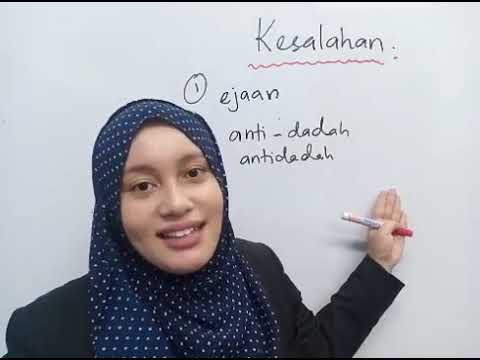 Kesalahan :
① ejaan
anti-dadah
antidadah